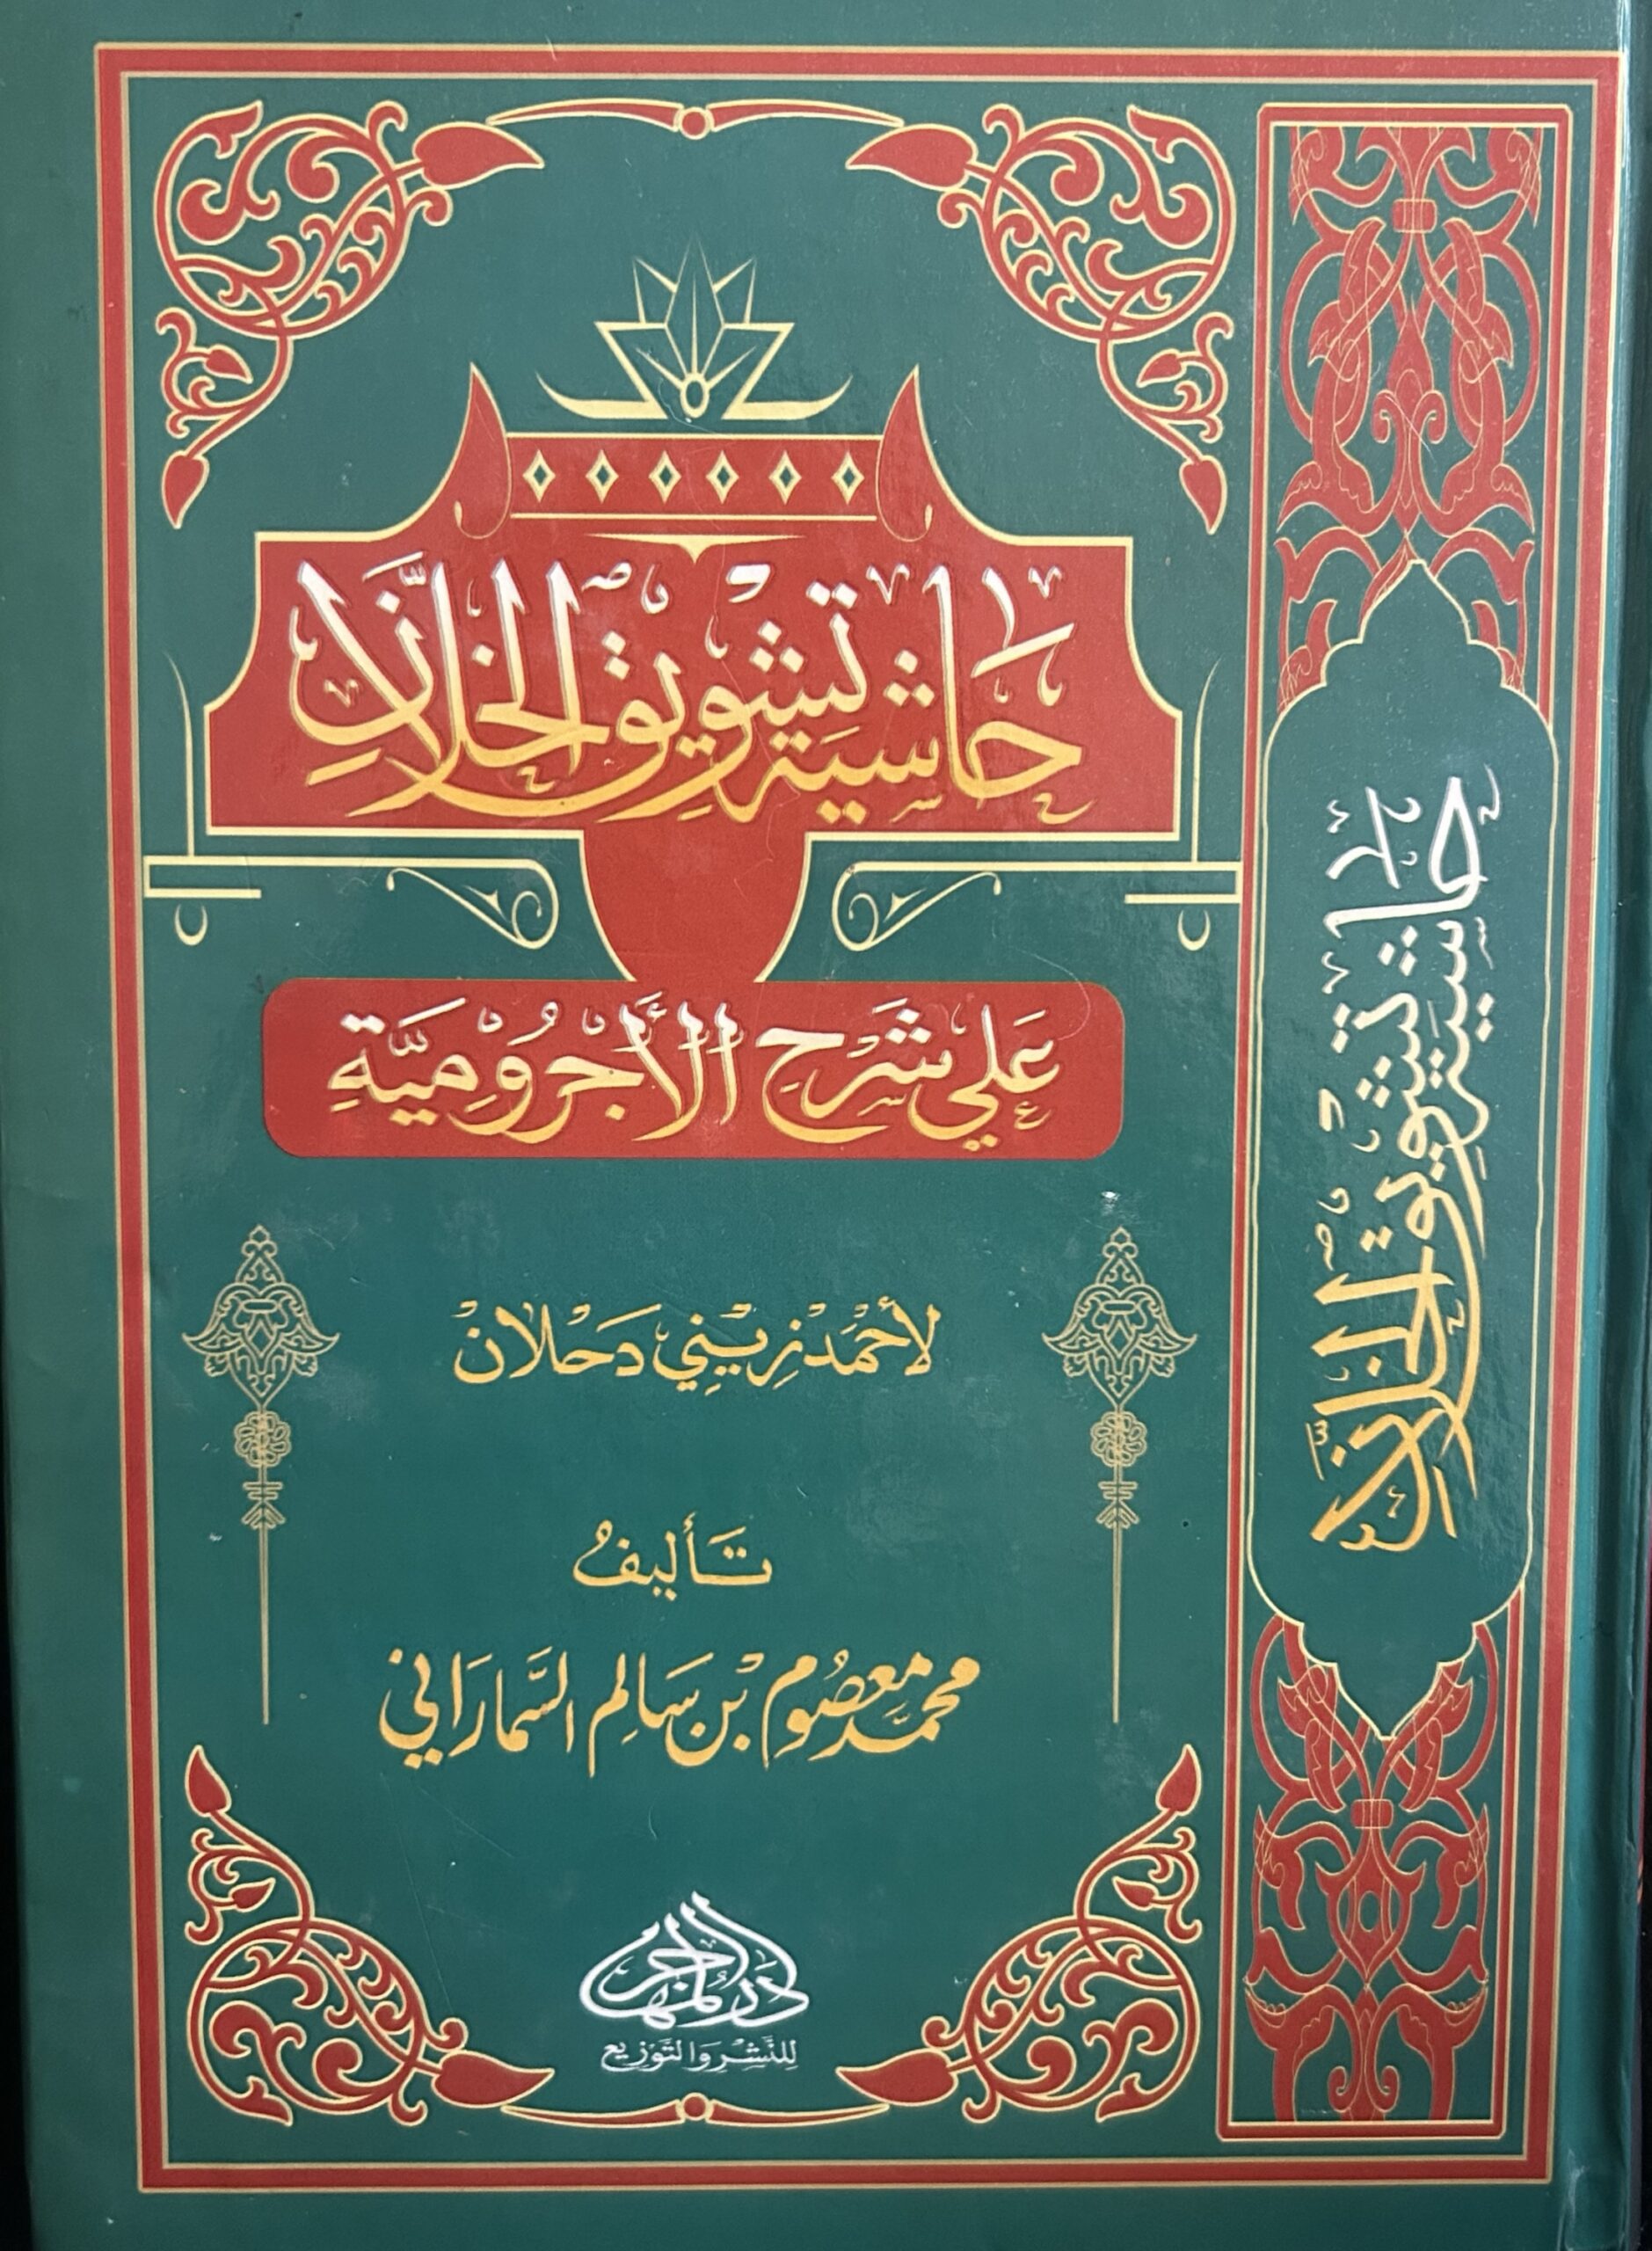 حَاشية تشويق الخلَّانِ
عَلي شَرْحِ الأَجْرُوْمِيَّةِ
لأحْمَد زِيْنِي دَحْلانْ
تَأليفُ
محمَّد معصُوم بْن سَالِم السَّمارَاني
للنَّشْر وَالتَّوْزيع
حاشية تشويق الخلَّانِ